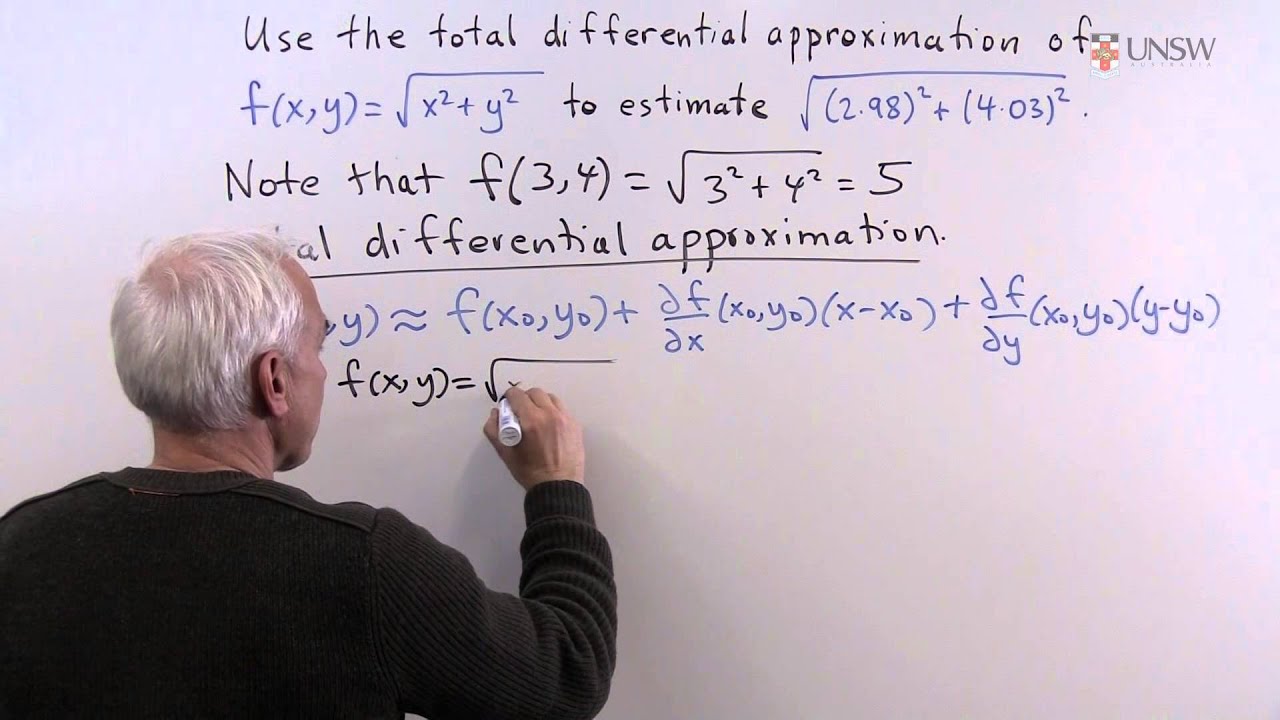 Use the total differential approximation of
f(x,y)=√(x²+y²) to estimate √((2.98)²+(4.03)²).
Note that f(3,4)=√(3²+4²)=5
differential approximation.
y)≈f(x₀,y₀)+∂f/∂x(x₀,y₀)(x-x₀)+∂f/∂y(x₀,y₀)(y-y₀)
f(x,y)=√x
UNSW
AUSTRALIA